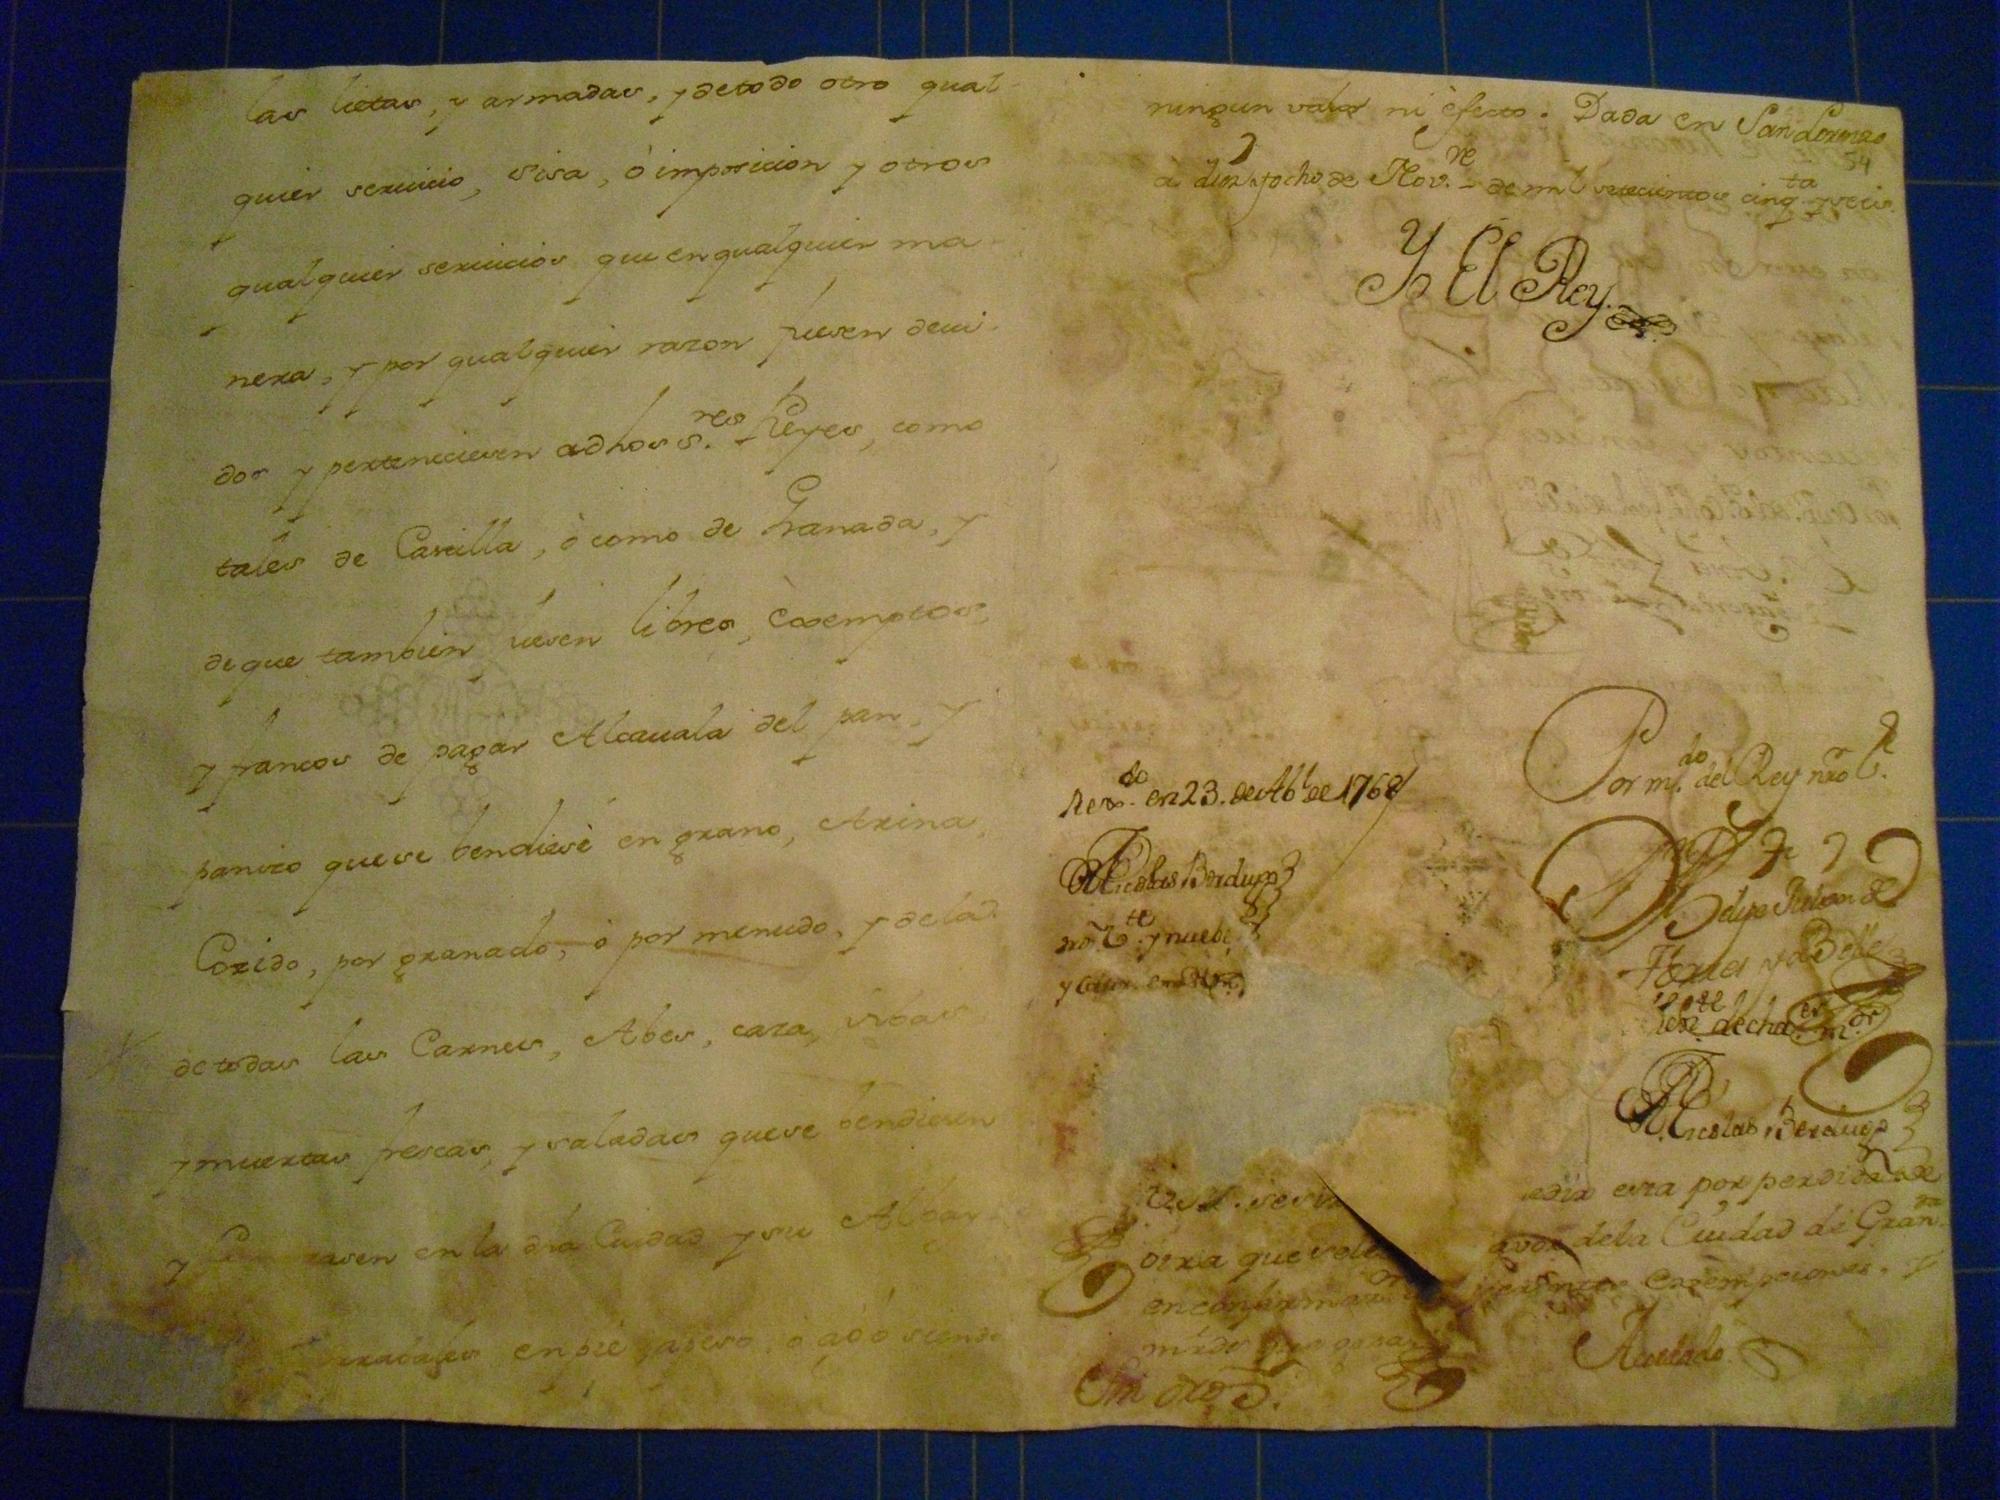 las lietas, y armadas, y detodo otro qual-
quier seruicio, sisa, ò imposicion y otros
qualquier seruicios que en qualquier ma-
nera, y por qualquier razon fuesen deui-
dos y pertenecieren adhos s.res Reyes, como
tales de Castilla, ò como de Granada, y
de que tambien fuesen libres, èxemptos,
y francos de pagar Alcauala del pan, y
panizo que se bendiesè en grano, Arina,
Cozido, por granado, ò por menudo, y de la d
de todas las Carnes, Abes, caza, vibas
y muertas frescas, y saladas que se bendiesen
y en la dha Ciudad y su Albar
en piè, apeso, ò a ojo siendo
ningun valor ni èfecto. Dada en San Lorenzo
54
à diez y ocho de Nov.re de mil setecientos cinq.ta y seis.
Yo El Rey.
Por m.do del Rey nro s.r
Rex.do en 23. de Ab.l de 1768
Nicolas Berdugo
y nuebe
Then.te de chan.er m.or
Nicolas Berdugo
V.M. se sir edir esta por perdida de
otra que dela Ciudad de Gran.da
en confirmaz.on exempciones, y
Acordado.